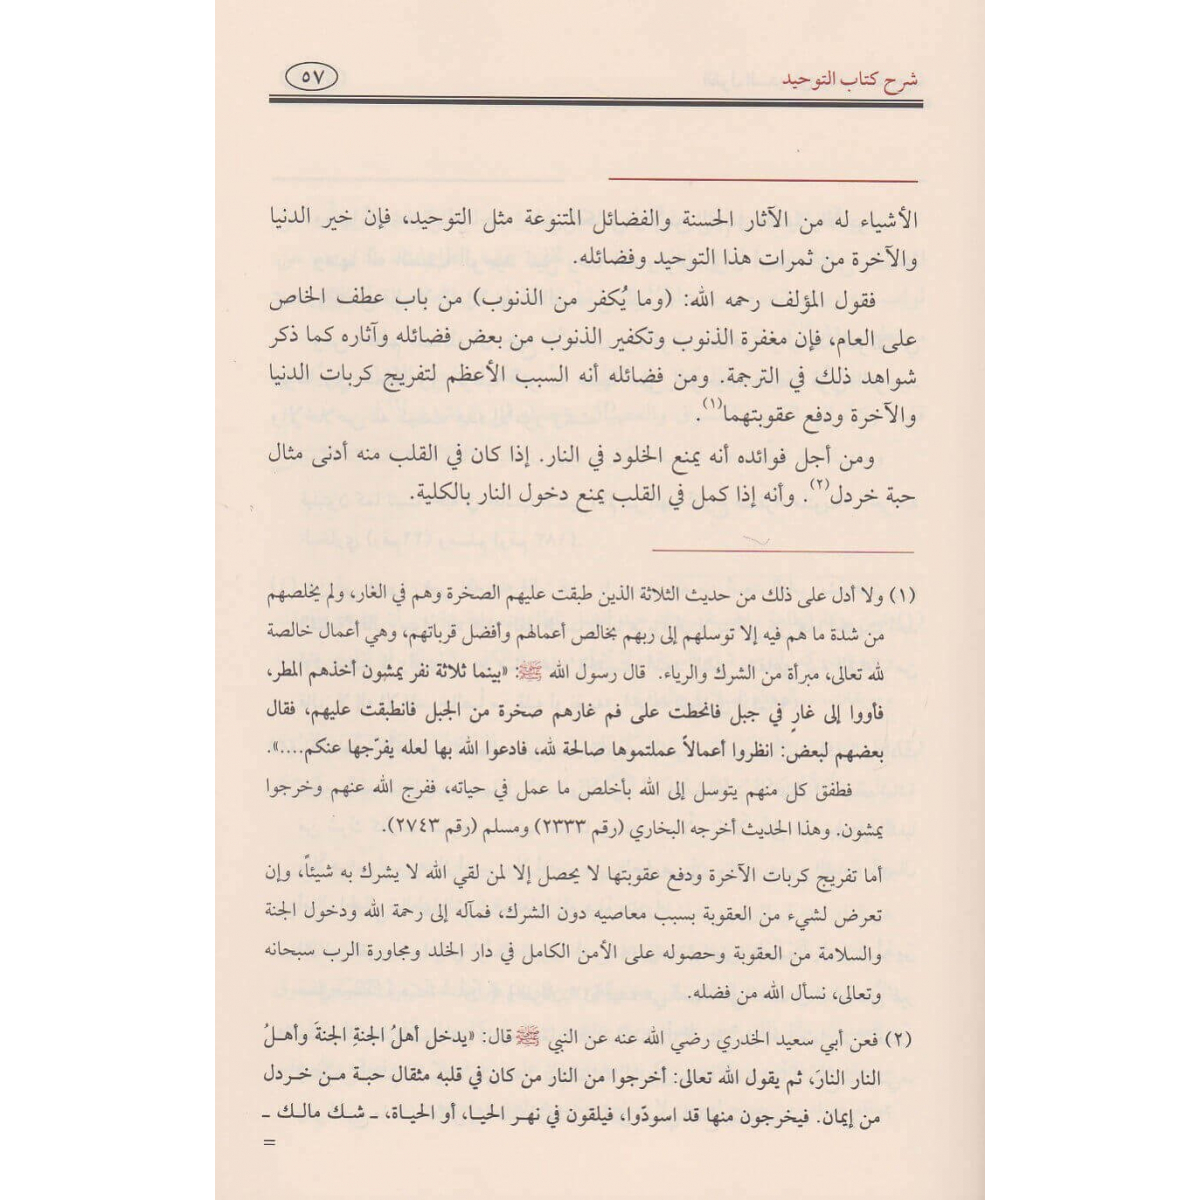 شرح كتاب التوحيد
٥٧
الأشياء له من الآثار الحسنة والفضائل المتنوعة مثل التوحيد، فإن خير الدنيا
والآخرة من ثمرات هذا التوحيد وفضائله.
فقول المؤلف رحمه الله: (وما يُكفر من الذنوب) من باب عطف الخاص
على العام، فإن مغفرة الذنوب وتكفير الذنوب من بعض فضائله وآثاره كما ذكر
شواهد ذلك في الترجمة. ومن فضائله أنه السبب الأعظم لتفريج كربات الدنيا
والآخرة ودفع عقوبتهما(١).
ومن أجل فوائده أنه يمنع الخلود في النار. إذا كان في القلب منه أدنى مثال
حبة خردل(٢). وأنه إذا كمل في القلب يمنع دخول النار بالكلية.
(١) ولا أدل على ذلك من حديث الثلاثة الذين طبقت عليهم الصخرة وهم في الغار، ولم يخلصهم
من شدة ما هم فيه إلا توسلهم إلى ربهم بخالص أعمالهم وأفضل قرباتهم، وهي أعمال خالصة
لله تعالى، مبرأة من الشرك والرياء. قال رسول الله ﷺ: «بينما ثلاثة نفر يمشون أخذهم المطر،
فأووا إلى غارٍ في جبل فانحطت على فم غارهم صخرة من الجبل فانطبقت عليهم، فقال
بعضهم لبعض: انظروا أعمالاً عملتموها صالحة لله، فادعوا الله بها لعله يفرّجها عنكم....».
فطفق كل منهم يتوسل إلى الله بأخلص ما عمل في حياته، ففرج الله عنهم وخرجوا
يمشون. وهذا الحديث أخرجه البخاري (رقم ٢٣٣٣) ومسلم (رقم ٢٧٤٣).
أما تفريج كربات الآخرة ودفع عقوبتها لا يحصل إلا لمن لقي الله لا يشرك به شيئاً، وإن
تعرض لشيء من العقوبة بسبب معاصيه دون الشرك، فمآله إلى رحمة الله ودخول الجنة
والسلامة من العقوبة وحصوله على الأمن الكامل في دار الخلد ومجاورة الرب سبحانه
وتعالى، نسأل الله من فضله.
(٢) فعن أبي سعيد الخدري رضي الله عنه عن النبي ﷺ قال: «يدخل أهلُ الجنةِ الجنةَ وأهلُ
النار النارَ، ثم يقول الله تعالى: أخرجوا من النار من كان في قلبه مثقال حبة من خردل
من إيمان. فيخرجون منها قد اسودّوا، فيلقون في نهر الحيا، أو الحياة، ـ شك مالك ـ
=